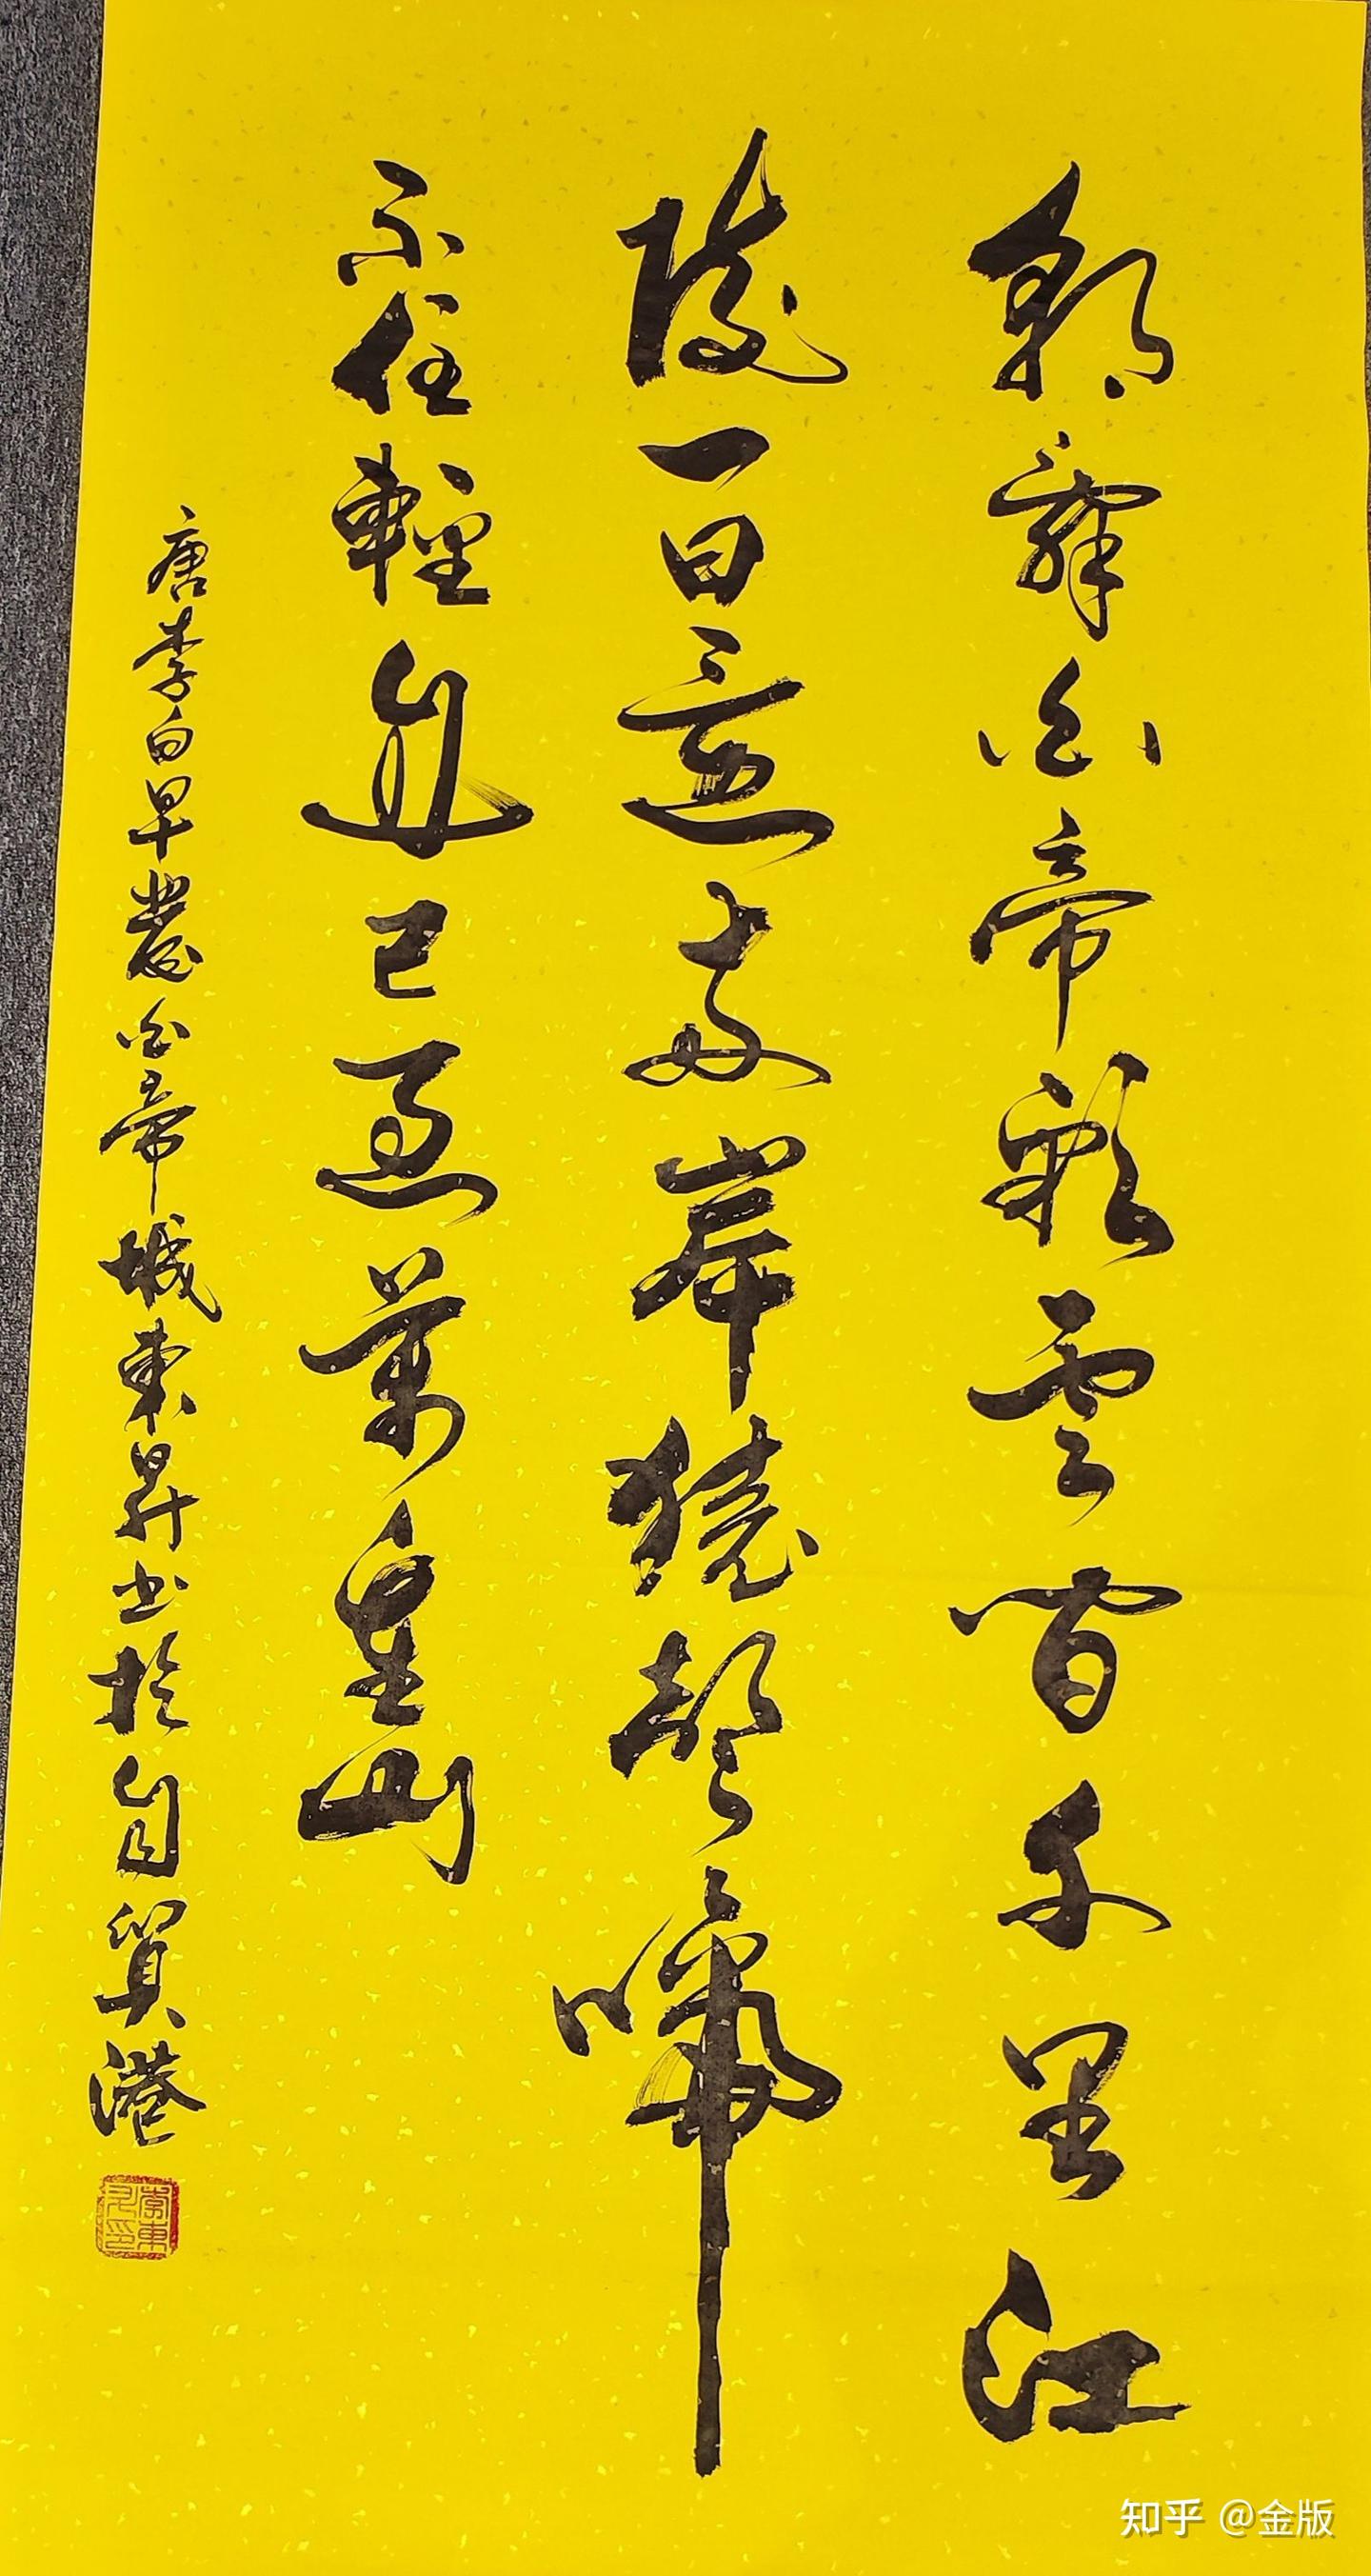 朝辭白帝彩雲間千里江
陵一日還兩岸猿聲啼
不住輕舟已過萬重山
唐李白早發白帝城東昇書於自貢港
知乎 @金版